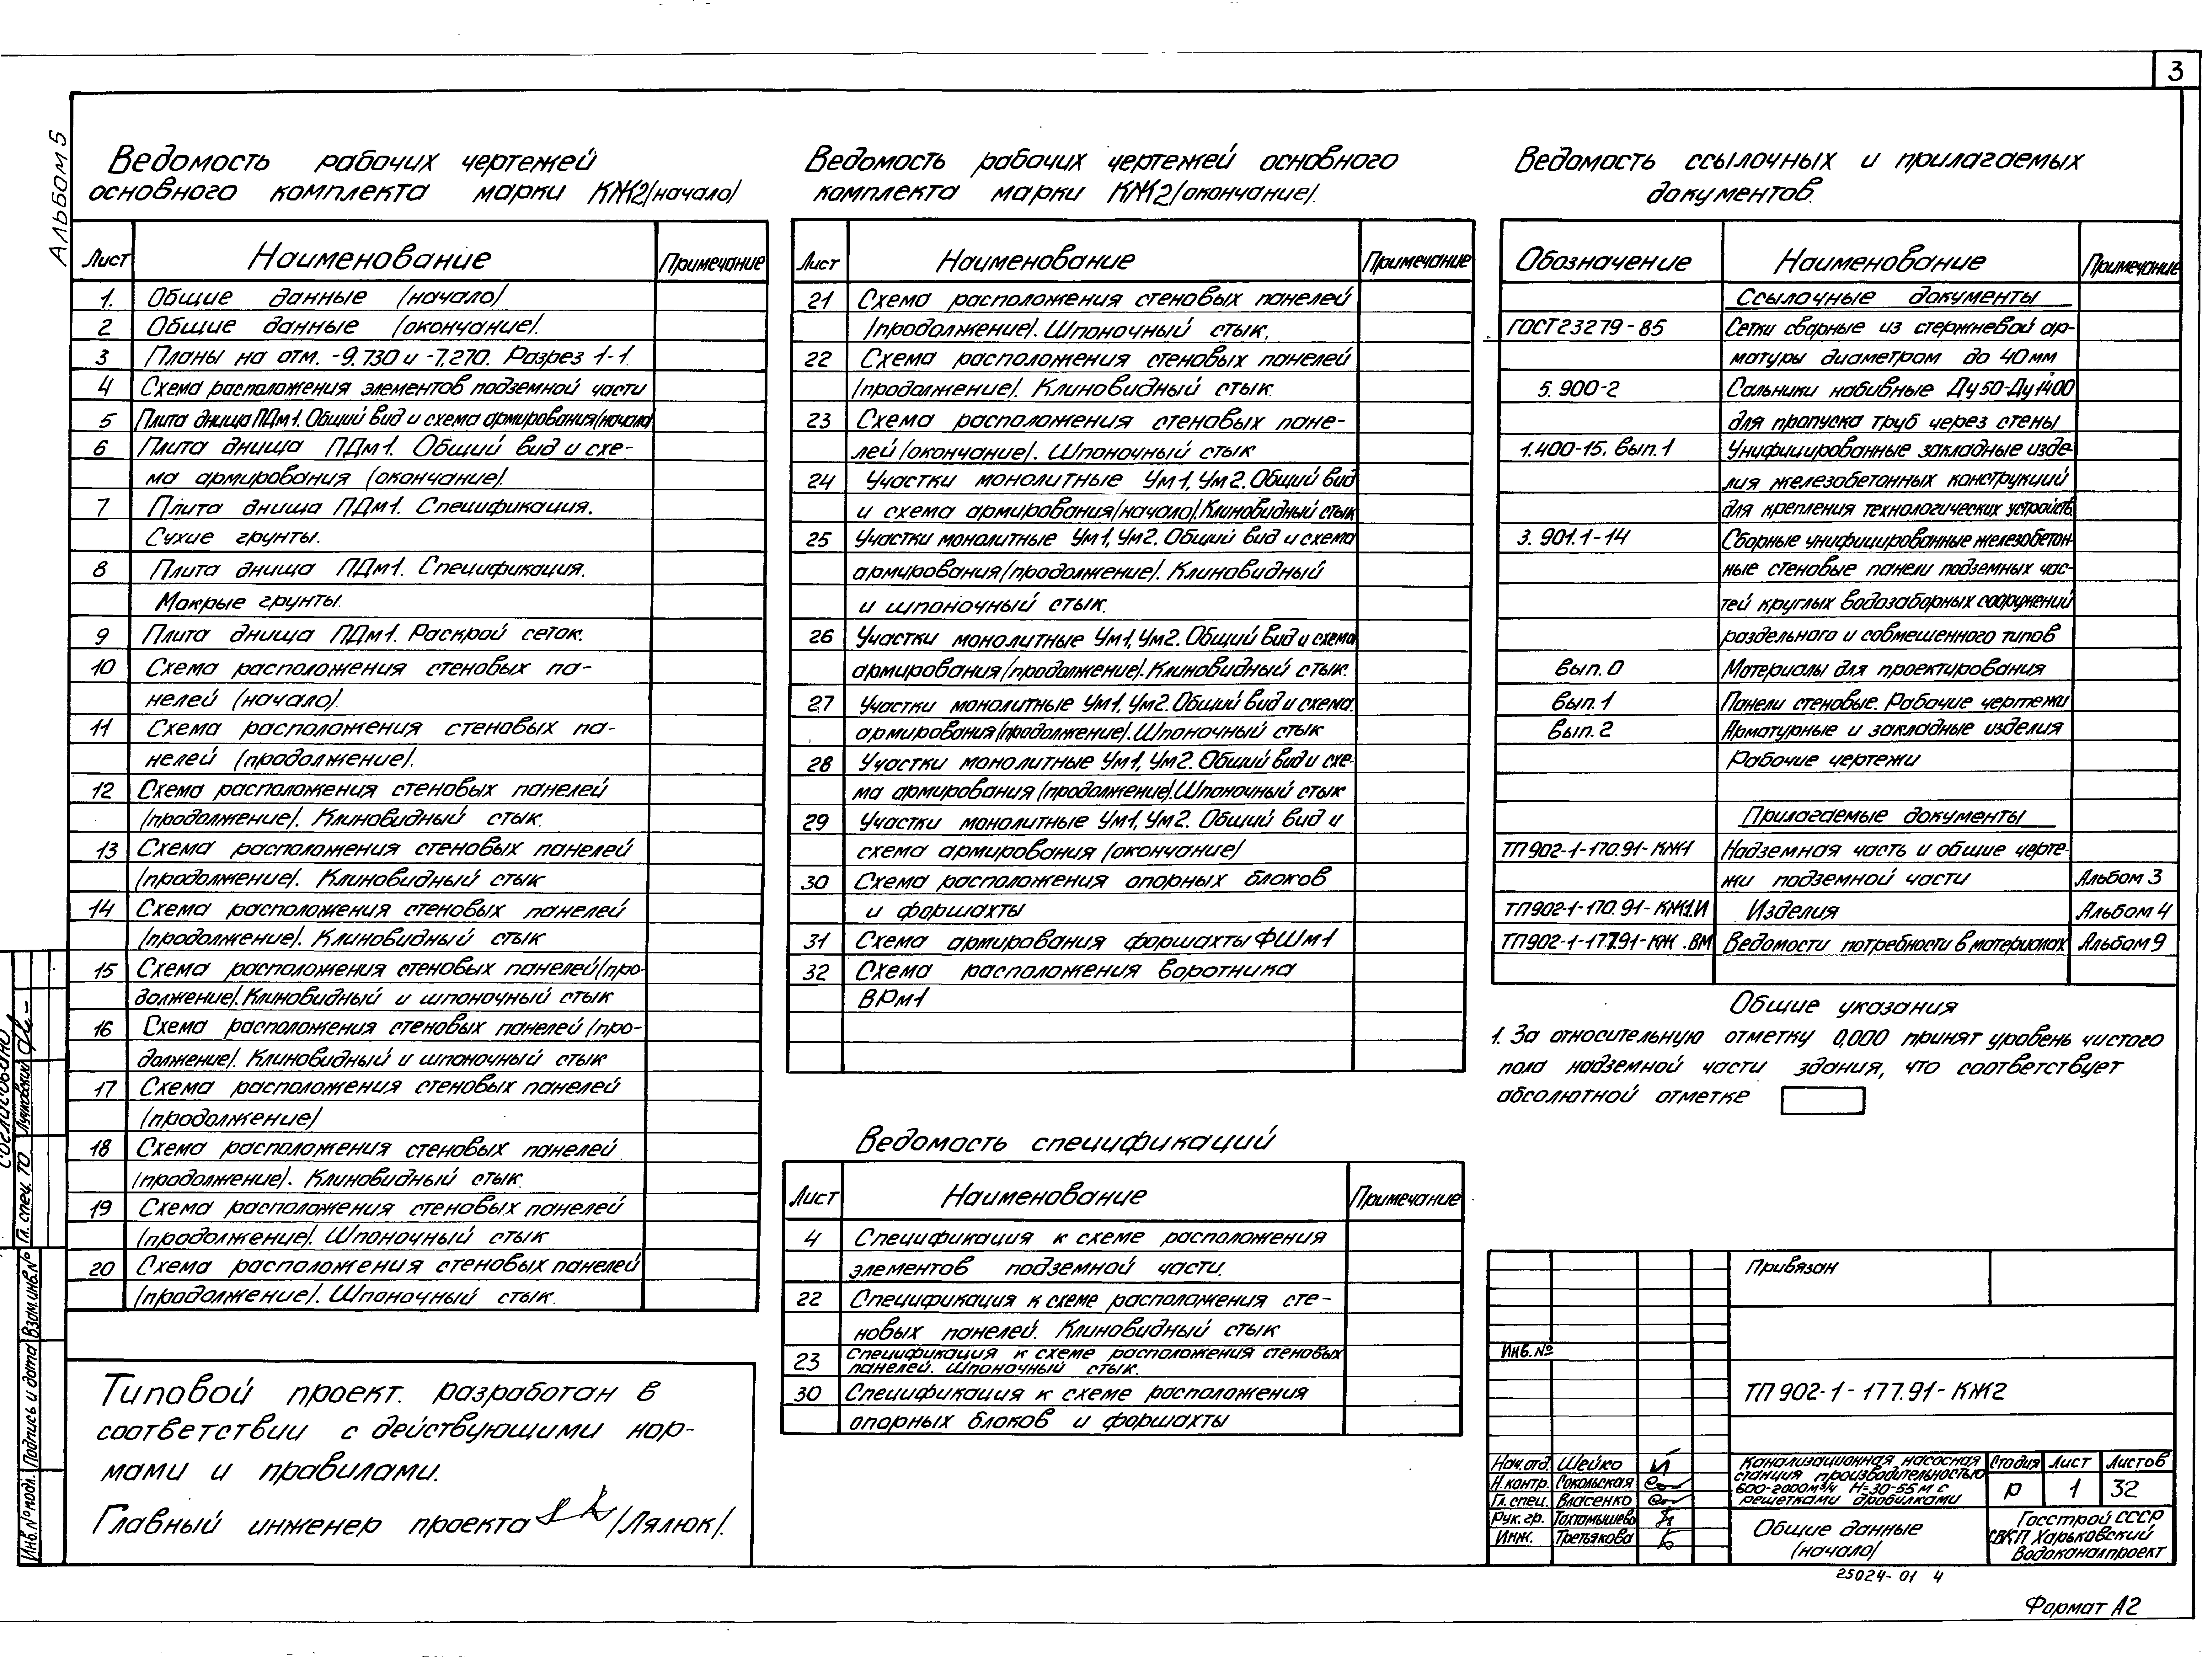 3
Альбом 5
Ведомость рабочих чертежей
основного комплекта марки КЖ2 (начало)
Лист Наименование Примечание
1. Общие данные (начало)
2 Общие данные (окончание).
3 Планы на отм. -9.730 и -7.270. Разрез 1-1.
4 Схема расположения элементов подземной части
5 Плита днища ПДм1. Общий вид и схема армирования (начало)
6 Плита днища ПДм1. Общий вид и схе-
ма армирования (окончание).
7 Плита днища ПДм1. Спецификация.
Сухие грунты.
8 Плита днища ПДм1. Спецификация.
Мокрые грунты.
9 Плита днища ПДм1. Раскрой сеток.
10 Схема расположения стеновых па-
нелей (начало).
11 Схема расположения стеновых па-
нелей (продолжение).
12 Схема расположения стеновых панелей
(продолжение). Клиновидный стык.
13 Схема расположения стеновых панелей
(продолжение). Клиновидный стык
14 Схема расположения стеновых панелей
(продолжение). Клиновидный стык
15 Схема расположения стеновых панелей (про-
должение). Клиновидный и шпоночный стык
16 Схема расположения стеновых панелей (про-
должение). Клиновидный и шпоночный стык
17 Схема расположения стеновых панелей
(продолжение)
18 Схема расположения стеновых панелей
(продолжение). Клиновидный стык.
19 Схема расположения стеновых панелей
(продолжение). Шпоночный стык
20 Схема расположения стеновых панелей
(продолжение). Шпоночный стык.
Типовой проект разработан в
соответствии с действующими нор-
мами и правилами.
Главный инженер проекта (Лялюк).
Ведомость рабочих чертежей основного
комплекта марки КЖ2 (окончание).
Лист Наименование Примечание
21 Схема расположения стеновых панелей
(продолжение). Шпоночный стык.
22 Схема расположения стеновых панелей
(продолжение). Клиновидный стык.
23 Схема расположения стеновых пане-
лей (окончание). Шпоночный стык
24 Участки монолитные Ум1, Ум2. Общий вид
и схема армирования (начало). Клиновидный стык
25 Участки монолитные Ум1, Ум2. Общий вид и схема
армирования (продолжение). Клиновидный
и шпоночный стык.
26 Участки монолитные Ум1, Ум2. Общий вид и схема
армирования (продолжение). Клиновидный стык.
27 Участки монолитные Ум1, Ум2. Общий вид и схема
армирования (продолжение). Шпоночный стык
28 Участки монолитные Ум1, Ум2. Общий вид и схе-
ма армирования (продолжение). Шпоночный стык
29 Участки монолитные Ум1, Ум2. Общий вид и
схема армирования (окончание)
30 Схема расположения опорных блоков
и форшахты
31 Схема армирования форшахты ФШм1
32 Схема расположения воротника
ВРм1
Ведомость спецификаций
Лист Наименование Примечание
4 Спецификация к схеме расположения
элементов подземной части.
22 Спецификация к схеме расположения сте-
новых панелей. Клиновидный стык
23 Спецификация к схеме расположения стеновых
панелей. Шпоночный стык.
30 Спецификация к схеме расположения
опорных блоков и форшахты
Ведомость ссылочных и прилагаемых
документов.
Обозначение Наименование Примечание
Ссылочные документы
ГОСТ 23279-85 Сетки сварные из стержневой ар-
матуры диаметром до 40 мм
5.900-2 Сальники набивные Ду50-Ду1400
для пропуска труб через стены
1.400-15. вып.1 Унифицированные закладные изде-
лия железобетонных конструкций
для крепления технологических устройств
3.901.1-14 Сборные унифицированные железобетон-
ные стеновые панели подземных час-
тей круглых водозаборных сооружений
раздельного и совмещенного типов
вып. 0 Материалы для проектирования
вып. 1 Панели стеновые. Рабочие чертежи
вып. 2 Арматурные и закладные изделия
Рабочие чертежи
Прилагаемые документы
ТП902-1-170.91-КЖ1 Надземная часть и общие черте-
жи подземной части Альбом 3
ТП902-1-170.91-КЖ1.И Изделия Альбом 4
ТП902-1-177.91-КЖ.ВМ Ведомости потребности в материалах Альбом 9
Общие указания
1. За относительную отметку 0,000 принят уровень чистого
пола надземной части здания, что соответствует
абсолютной отметке
Привязан
Инв. №
ТП 902-1-177.91-КЖ2
Нач. отд. Шейко
Н. контр. Сокольская
Гл. спец. Власенко
Рук. гр. Тохтамышева
Инж. Третьякова
Канализационная насосная
станция производительностью
600-2000м³/ч Н=30-55м с
решетками дробилками
Стадия Лист Листов
Р 1 32
Общие данные
(начало)
Госстрой СССР
СВКП Харьковский
Водоканалпроект
25024-01 4
Формат А2
Согласовано
Гл. спец. ТО
Инв. № подл. Подпись и дата Взам. инв. №